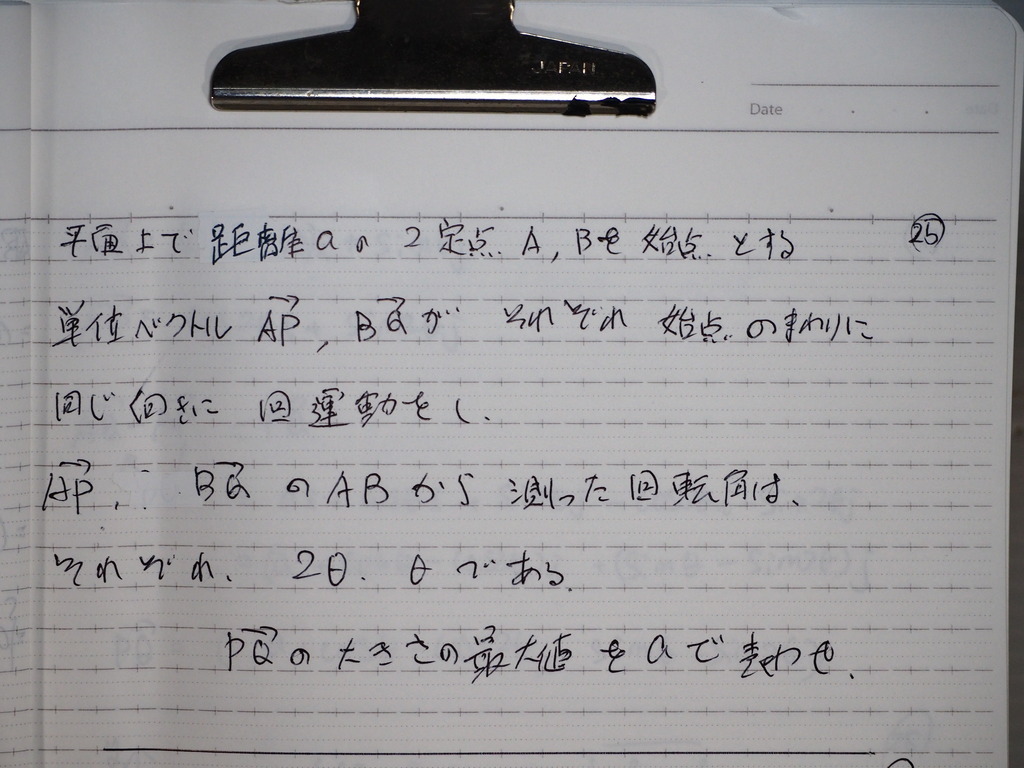 JAPAN
Date
平面上で 距離 a の 2 定点 A, B を 始点 とする ㉕
単位ベクトル AP, BQ が それぞれ 始点 のまわりに
同じ向きに 回運動をし、
AP, BQ の AB から 測った回転角は、
それぞれ、2θ、θ である。
PQ の大きさの最大値 を a で 表わせ。